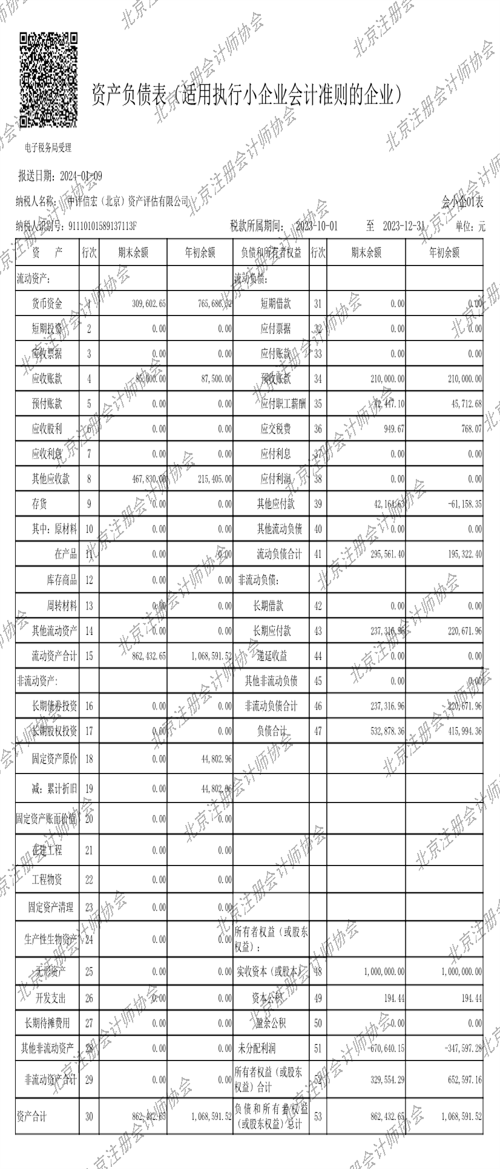 资产负债表（适用执行小企业会计准则的企业）
电子税务局受理
报送日期：2024-01-09
纳税人名称： 中评信宏（北京）资产评估有限公司 会小企01表
纳税人识别号：9111010158913​7113F 税款所属期间： 2023-10-01 至 2023-12-31 单位：元
资 产 行次 期末余额 年初余额 负债和所有者权益 行次 期末余额 年初余额
流动资产： 流动负债：
货币资金 1 309,602.65 765,686.52 短期借款 31 0.00 0.00
短期投资 2 0.00 0.00 应付票据 32 0.00 0.00
应收票据 3 0.00 0.00 应付账款 33 0.00 0.00
应收账款 4 85,000.00 87,500.00 预收账款 34 210,000.00 210,000.00
预付账款 5 0.00 0.00 应付职工薪酬 35 42,447.10 45,712.68
应收股利 6 0.00 0.00 应交税费 36 949.67 768.07
应收利息 7 0.00 0.00 应付利息 37 0.00 0.00
其他应收款 8 467,830.00 215,405.00 应付利润 38 0.00 0.00
存货 9 0.00 0.00 其他应付款 39 42,164.63 -61,158.35
其中：原材料 10 0.00 0.00 其他流动负债 40 0.00 0.00
在产品 11 0.00 0.00 流动负债合计 41 295,561.40 195,322.40
库存商品 12 0.00 0.00 非流动负债：
周转材料 13 0.00 0.00 长期借款 42 0.00 0.00
其他流动资产 14 0.00 0.00 长期应付款 43 237,316.96 220,671.96
流动资产合计 15 862,432.65 1,068,591.52 递延收益 44 0.00 0.00
非流动资产： 其他非流动负债 45 0.00 0.00
长期债券投资 16 0.00 0.00 非流动负债合计 46 237,316.96 220,671.96
长期股权投资 17 0.00 0.00 负债合计 47 532,878.36 415,994.36
固定资产原价 18 0.00 44,802.96
减：累计折旧 19 0.00 44,802.96
固定资产账面价值 20 0.00 0.00
在建工程 21 0.00 0.00
工程物资 22 0.00 0.00
固定资产清理 23 0.00 0.00
生产性生物资产 24 0.00 0.00 所有者权益（或股东权益）：
无形资产 25 0.00 0.00 实收资本（或股本） 48 1,000,000.00 1,000,000.00
开发支出 26 0.00 0.00 资本公积 49 194.44 194.44
长期待摊费用 27 0.00 0.00 盈余公积 50 0.00 0.00
其他非流动资产 28 0.00 0.00 未分配利润 51 -670,640.15 -347,597.28
非流动资产合计 29 0.00 0.00 所有者权益（或股东权益）合计 52 329,554.29 652,597.16
资产合计 30 862,432.65 1,068,591.52 负债和所有者权益（或股东权益）总计 53 862,432.65 1,068,591.52
北京注册会计师协会